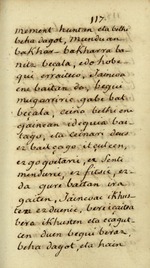 117.
moment huntan eta beth
beha dagot, munduan
bakhar-bakharra ba-
nitz beçala, edo hobe
qui erraiteco, Jaincoa
ene baitan da, begui
mugarric gabe bat
beçala, ceñic bethi ene
gainean idequia bai-
tago, eta ceñari deus
ez baitçayo itçulcen,
ez gogoetaric, ez senti
menduric, ez hitsic, ez
da gure baitan ira
gaiten, Jaincoac ikhus
ten ez duenic, bere içaitea
bera ikhusten eta eçagut
cen duen begui beraz,
beha dagot, eta hain